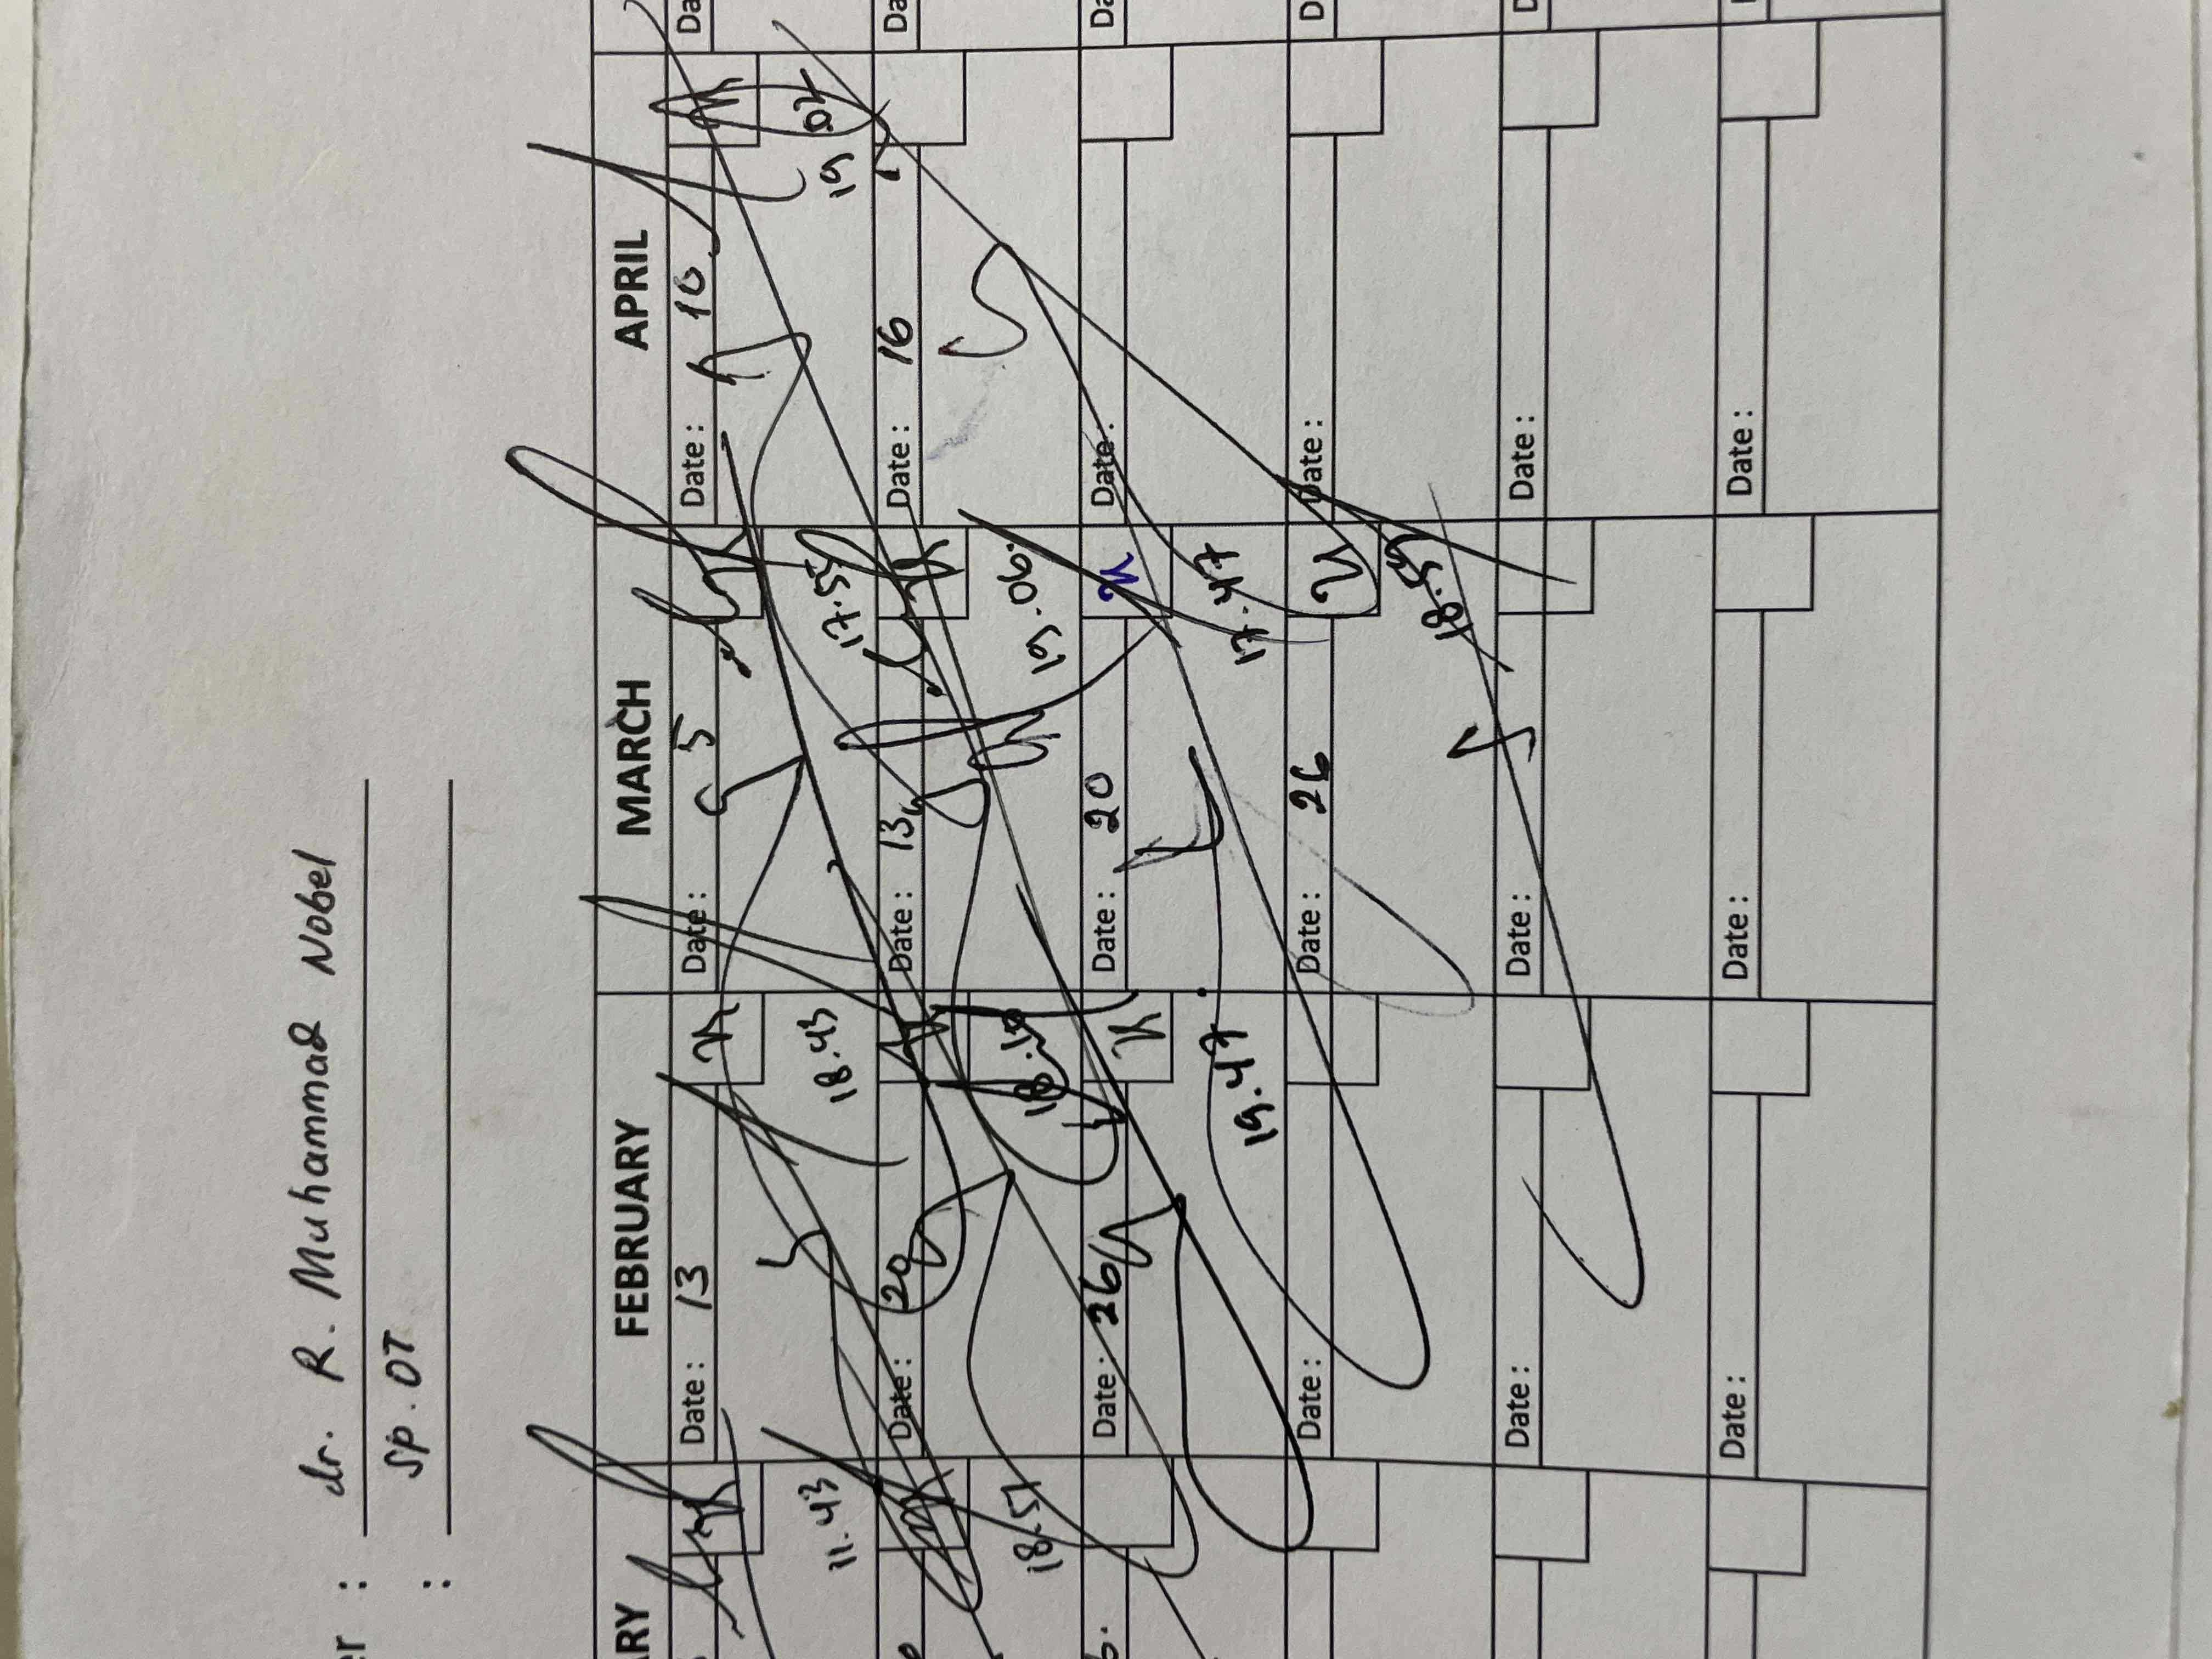 er : dr. R. Muhammad Nobel
: Sp. OT
ARY FEBRUARY MARCH APRIL
Date : 13 Date : 5 Date : 10 Da
11.43 18.43 17.55 19 02
Date : 20 Date : 13 Date : 16 Da
18.51 18.19 19.06
Date : 26 Date : 20 Date : Da
19.47 17.47
Date : Date : 26 Date : D
18.57
Date : Date : Date : D
Date : Date : Date :